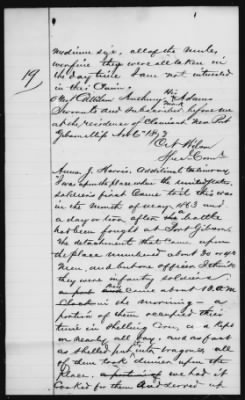 19/
medium size, all of the mules
were fine they were all taken in
the day time I am not interested
in this Claim.
Anthony his X mark Adams
Sworn to and subscribed before me
at the residence of Claimant near Port
Gibson Miss Oct 6th 1873
Orl Wilson
Spec Comr
Anna J. Harris. Additional testimony
I was at the place when the united states
soldiers first came there this was
in the month of May 1863 and
a day or two after the battle
had been fought at Port Gibson.
the detachment that came upon
the place numbered about 30 or 40
men, and but one officer I think
they were infantry soldiers
Came about 10 A.M.
in the morning - a
portion of them occupied their
time in shelling corn, as it kept
on nearly all day, and as fast
as shelled put into wagons, all
of them took dinner upon the
place. we had it
Cooked for them and served up